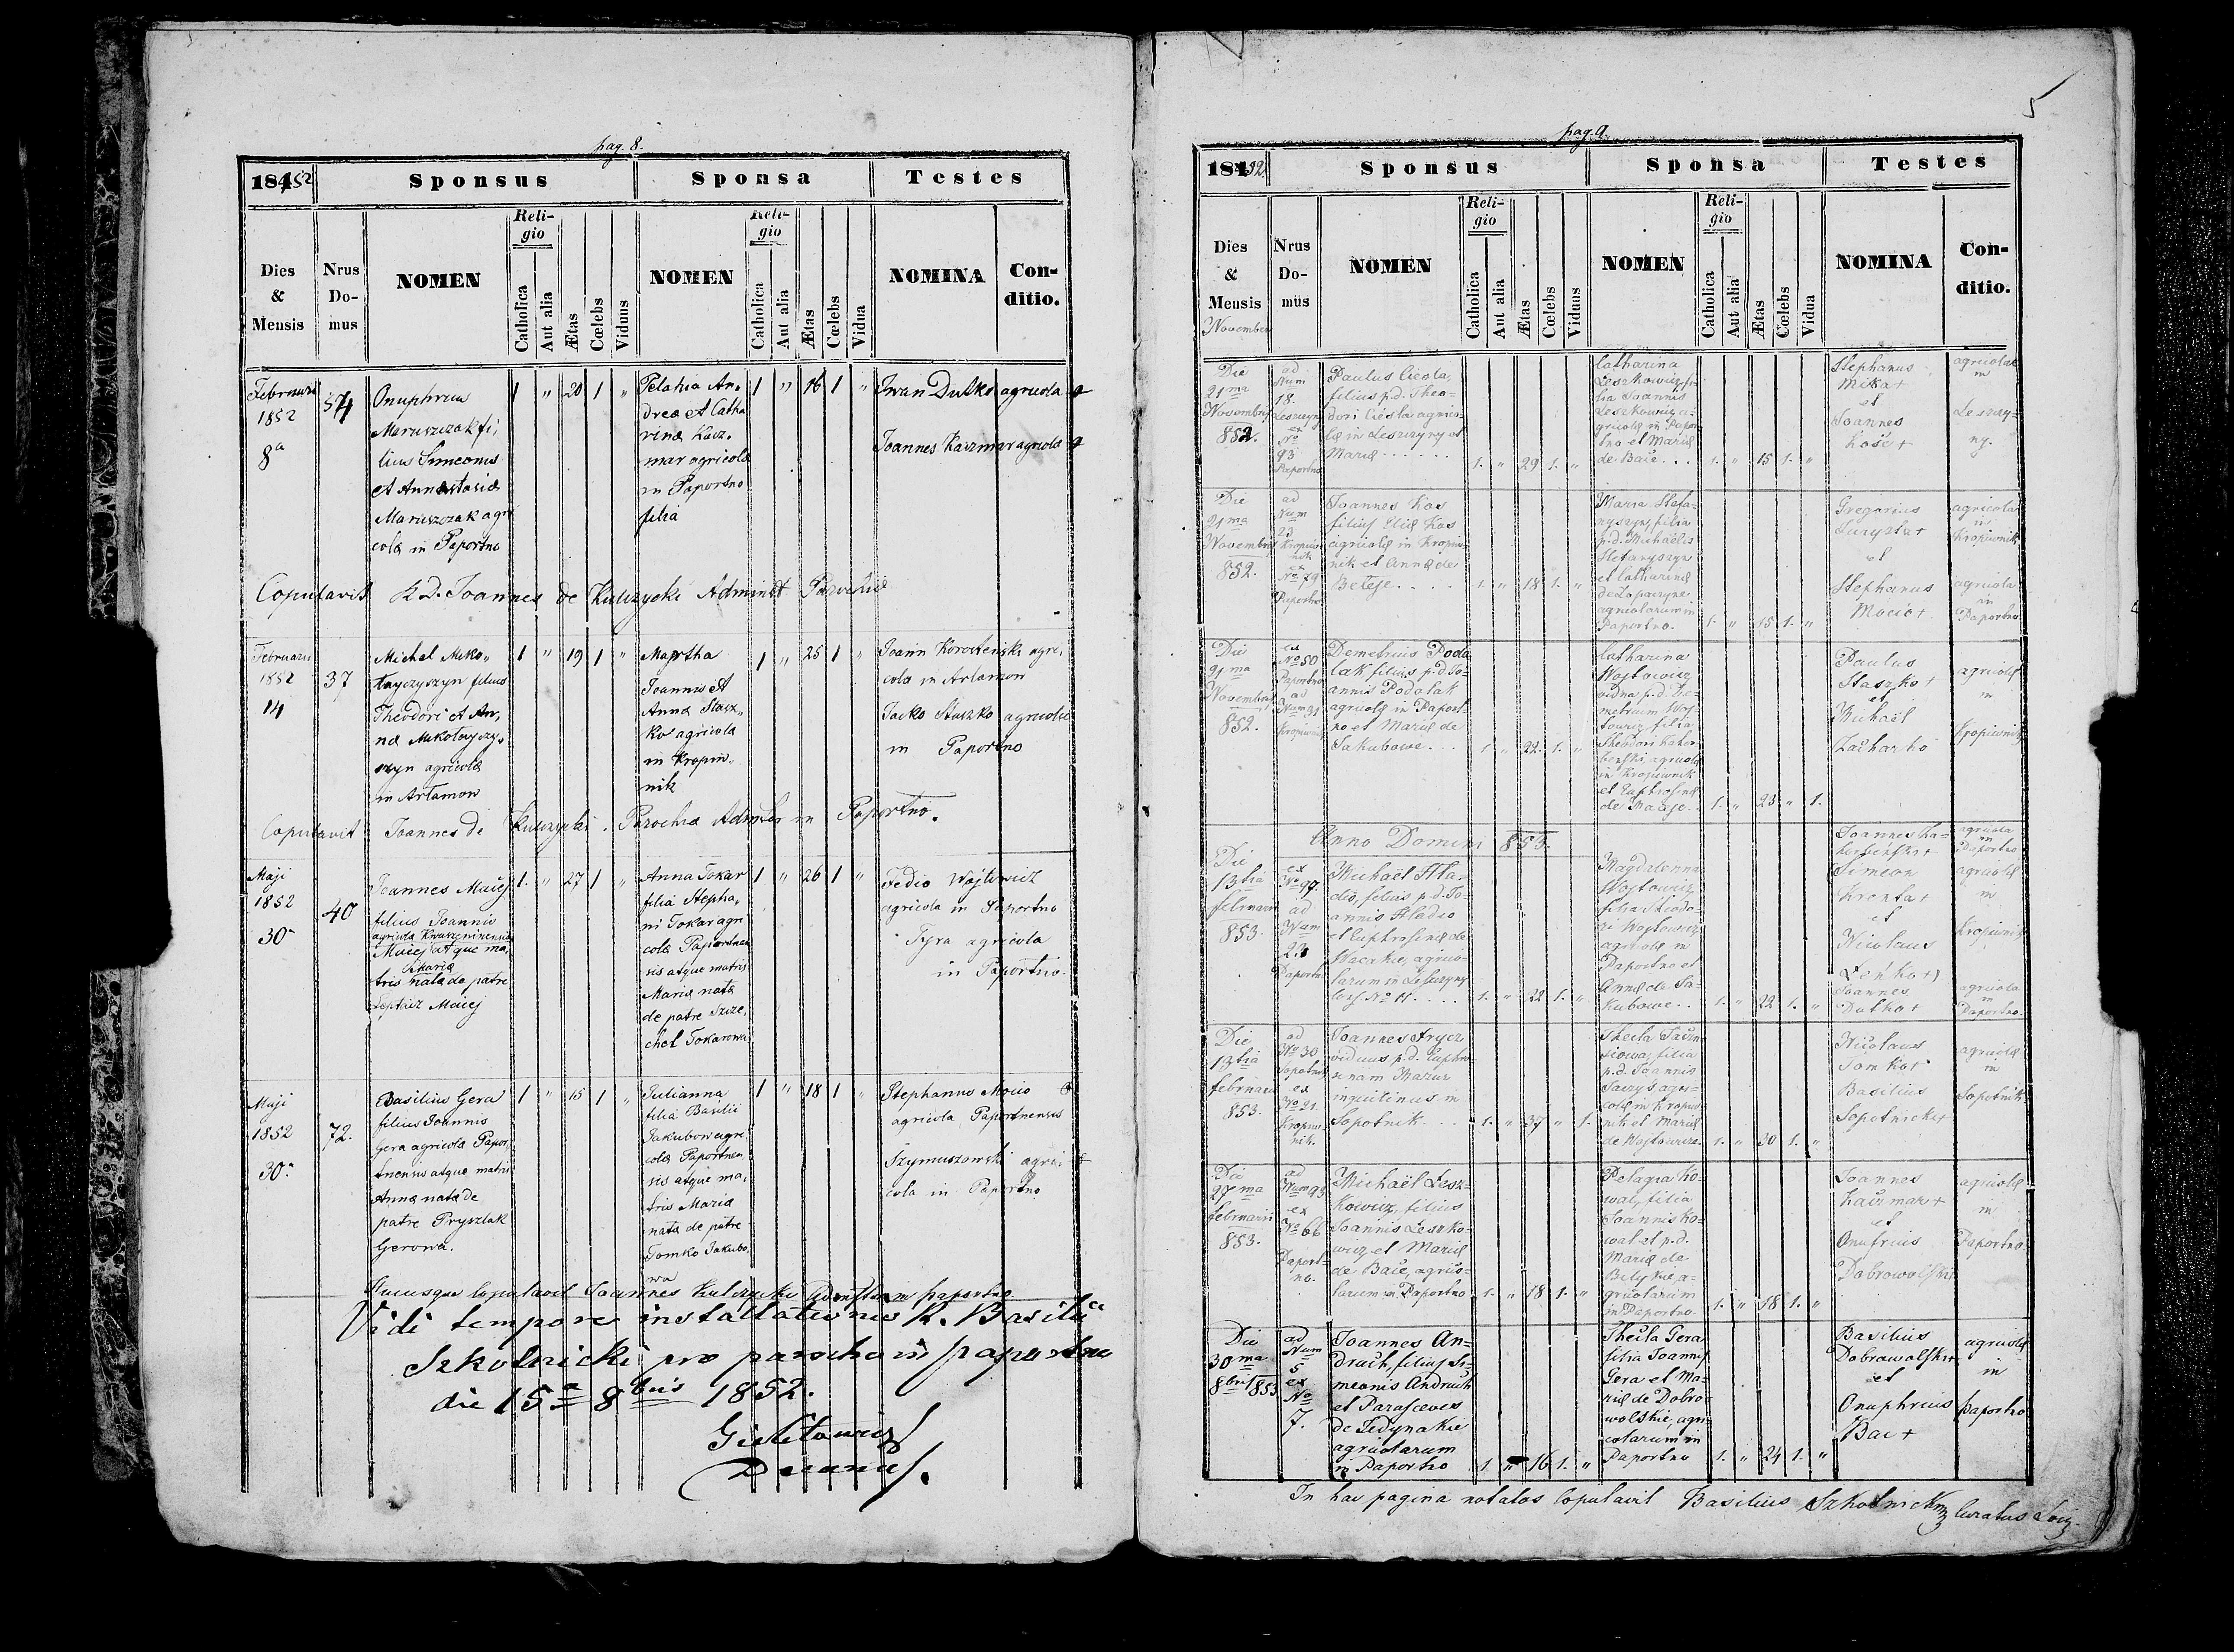 pag. 8.
18452
Sponsus
Sponsa
Testes
Dies & Mensis
Nrus Domus
NOMEN
Religio
Catholica
Aut alia
Ætas
Cœlebs
Viduus
NOMEN
Religio
Catholica
Aut alia
Ætas
Cœlebs
Vidua
NOMINA
Conditio.
Februarii
1852
8a
54
Onuphrius
Maruszczak fi,
lius Simeonis
et Annastasiæ
Maruszczak agri
colæ in Paportno
1 " 20 1 "
Pelahia An,
dreæ et Catha
rinæ Kacz,
mar agricolæ
in Paportno
filia
1 " 16 1 "
Iwan Dutko agricola +
Joannes Kaczmar agricola +
Copulavit R. D. Joannes de Kulczycki Adminst Parochiæ
Februarii
1852
14
37
Michel Miko,
łayczyszyn filius
Theodori et An,
næ Mikołayczy,
szyn agricolæ
in Artamow
1 " 19 1 "
Martha
Joannis et
Anna Stasz,
ko agricola
in Kropiw,
nik
1 " 25 1 "
Joann Korosteński agri,
cola in Artamow
Jacko Staszko agricola
in Paportno
Copulavit Joannes de Kulczycki. Parochiæ Admster in Paportno.
Maji
1852
30a
40
Joannes Maiej
filius Joannis
agricola Kwaszeninensis
Maiej atque ma,
Maria
tris nata de patre
Maiej
1. " 27 1 "
Anna Tokar
filia Stepha,
ni Tokar agri
colæ Paportnen
sis atque matris
Maria nata
de patre
Tokarowa
1 " 26 1 "
Fedio Wojtowicz
agricola in Paportno
Tyra agricola
in Paportno.
Maji
1852
30a
72.
Basilius Gera
filius Joannis
Gera agricolæ Papor,
tnensis atque matris
Anna nata de
patre Pryszlak
Gerowa.
1 " 15 1 "
Julianna
filia Basilii
Jakubow agri
colæ Paportnen
sis atque ma,
tris Maria
nata de patre
Tomko Jakubo,
wa
1 " 18 1 "
Stephanus Mocio
agricola Paportnensis
Szymuszowski agri +
cola in Paportno
Hucusque copulavit Joannes Kulczycki Admster in paportno
Vidi tempore installationis R. Basilii
Szkolnicki pro parocho in paportno
die 15a 8bris 1852.
Decanus.
5
pag. 9.
18452.
Sponsus
Sponsa
Testes
Dies & Mensis
November
Nrus Domus
NOMEN
Religio
Catholica
Aut alia
Ætas
Cœlebs
Viduus
NOMEN
Religio
Catholica
Aut alia
Ætas
Cœlebs
Vidua
NOMINA
Conditio.
Die
21ma
Novembris
852.
ad
Num
18.
Leszczyny
ex
No
93
Paportno
Paulus Ciesla,
filius p.d. Theo=
dori Ciesla agrico=
læ in Leszczyny et
Mariæ . . . . . .
1. " 29 1. "
Catharina
Leszkowicz, fi=
lia Joannis
Leszkowicz a=
gricolæ in Papor
tno et Mariæ
de Baie . . .
1. " 15 1. "
Stephanus
Mika +
et
Joannes
Kość +
agricolæ
in
Leszczy=
ny.
Die
21ma
Novembris
852.
ad
Num
23
Kropiw=
nik
ex
No 79
Paportno
Joannes Kos
filius Eliæ Kos
agricolæ in Kropiw=
nik et Annæ de
Beteje . . . .
1. " 18 1. "
Maria Stefa=
nyszyn, filia
p.d. Michaelis
Stefanyszyn
et Catharinæ
de Lopaczyne,
agricolarum in
Paportno.
1. " 15 1. "
Gregorius
Juryzta +
et
Stephanus
Mocio +
agricola
in
Kropiwnik
agricola
in
Paportno
Die
21ma
Novembris
852.
ex
No 50
Paportno
ad
Num 31
Kropiwnik
Demetrius Podo
lak filius p.d. Jo=
annis Podolak
agricolæ in Paport
no et Mariæ de
Jakubowe . . .
1. " 22. 1. "
Catharina
Wojtowicz
vidua p.d. De=
metrium Woj
towicz, filia
Theodori
agricolæ
in Kropiwnik
et Euphrosinæ
de Maceje . .
1. " 23 " 1.
Paulus
Staszko +
et
Michaël
Zacharko
agricolæ
in
Kropiwnik
Anno Domini 853.
Die
13tia
februarii
853.
ex
No 47
ad
Num
22
Paportno
Michaël Hla=
dio, filius p.d. Jo=
annis Hladio
et Euphrosinæ de
Hacskie, agrico=
larum in Leszczyny
No 11. . . .
1. " 22 1. "
Magdalenna
Wojtowicz
filia Theodo=
ri Wojtowicz
agricolæ in
Paportno et
Annæ de Ja=
kubowe . .
1. " 22 1. "
Joannes
Simeon
Krenta +
et
Nicolaus
Zenko +
Joannes
Dutko +
agricola
in
Paportno
agricolæ
in
Kropiwnik
agricola
in
Paportno.
Die
13tia
februarii
853.
ad
No 30
Sopotnik
ex
No 21
Kropiw=
nik.
Joannes Hrycz
viduus p.d. Euphro=
sinam Mazur
inquilinus in
Sopotnik . . .
1. " 37 " 1.
Thecla
filia
p.d. Joannis
agri=
colæ in Kropiw=
nik et Mariæ
de Wojtowicze.
1. " 30 1. "
Nicolaus
Tomko +
Basilius
Sopotnicki +
agricolæ
in
Sopotnik
Die
27ma
februarii
853.
ad
Num 93
ex
No 66
Paport=
no.
Michaël Lesz=
kowicz, filius
Joannis Leszko=
wicz et Mariæ
de Baie, agrico=
larum in Paportno
1. " 18 1. "
Pelagia Ko=
wal, filia
Joannis Ko=
wal et p.d.
Mariæ de
Bilykie, a=
gricolarum
in Paportno.
1. " 18 1. "
Joannes
Kaczmar +
et
Onufrius
Dobrowolski
agricolæ
in
Paportno
Die
30ma
8bris 853
ad
Num
5
ex
No
7.
Joannes An=
druch, filius Si=
meonis Andruch
et Parasceves
de Fedynakie
agricolarum
in Paportno
1. " 16 1. "
Thecla Gera
filia Joannis
Gera et Ma=
riæ de Dobro=
wolskie, agri=
colarum in
Paportno
1. " 24 1. "
Basilius
Dobrowolski +
et
Onuphrius
Bac +
agricolæ
in
paportno
In hac pagina notatos Copulavit Basilius Szkolnicki Curatus Loci.